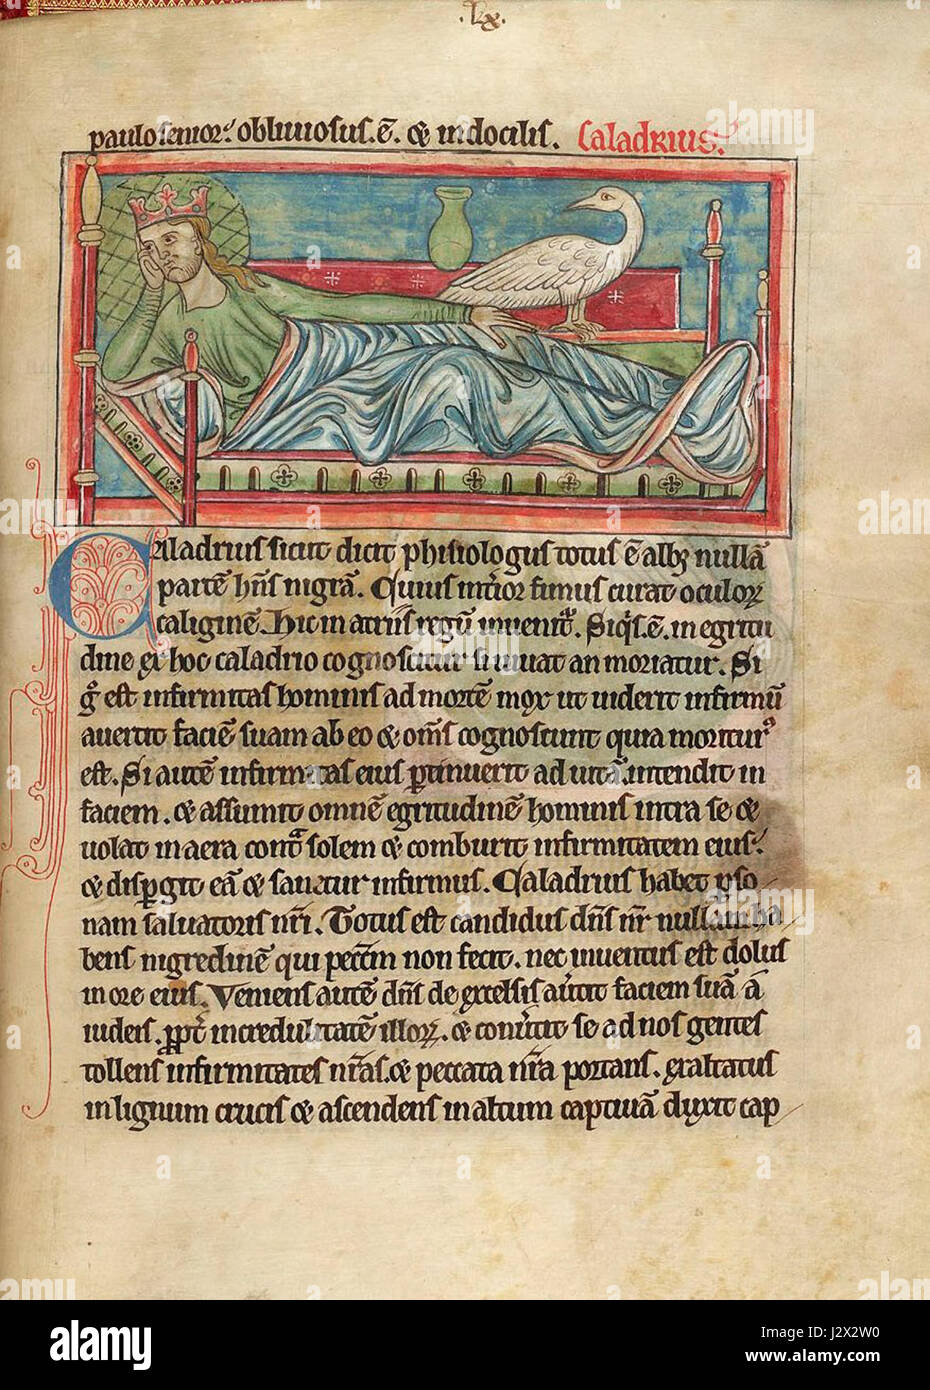 .lx.
paulo senior. obliuiosus. ē. & indocilis. Caladrius.
Caladrius sicut dicit phisiologus totus ē albꝫ nullā
partē hn̄s nigrā. Cuius int̓ior fimus curat oculoꝝ
caliginē. Hic in atriis regū inuenit᷑. Siq̇s. ē. in egritu
dine ex hoc caladrio cognoscitur si uiuat an moriatur. Si
g̊ est infirmitas hominis ad mortē mox ut uiderit infirmū
auertit faciē suam ab eo & om̄s cognoscunt quia moriturꝰ
est. Si autē infirmitas eius ꝑtinuerit ad uitā. intendit in
faciem. & assumit omnē egritudinē hominis intra se &
uolat in aera cont̾ solem & comburit infirmitatem eius.
& disꝑgit eā & sanatur infirmus. Caladrius habet ꝑso
nam saluatoris nr̄i. Totus est candidus dn̄s nr̄ nullam ha
bens nigredinē qui pecc̄m non fecit. nec inuentus est dolus
in ore eius. Veniens autē dn̄s de excelsis au̓tit faciem suā ā
iudeis. ꝓpt̓ incredulitatē illoꝝ. & conu̓tit se ad nos gentes
tollens infirmitates nr̄as. & peccata nr̄a portans. exaltatus
in lignum crucis & ascendens in altum captiuā duxit cap
alamy
Image ID: J2X2W0
www.alamy.com